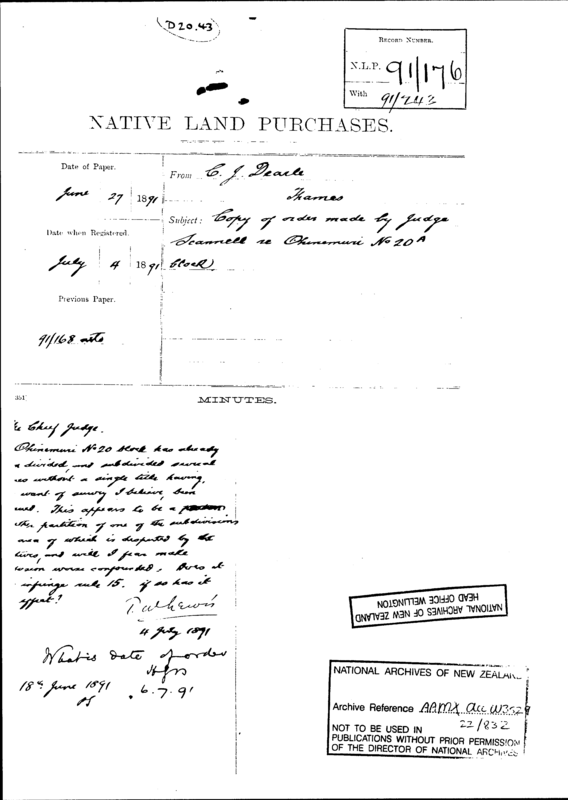 D20.43
RECORD NUMBER.
N.L.P. 91/176
With 91/243
NATIVE LAND PURCHASES.
Date of Paper.
June 27 1891
From C. J. Dearle
Thames
Subject: Copy of order made by Judge
Scannell re Ohinemuri No 20A
block
Date when Registered.
July 4 1891
Previous Paper.
91/168
351]
MINUTES.
Chief Judge.
Ohinemuri No 20 block has already
divided, and subdivided several
es without a single title having,
want of survey I believe, been
ued. This appears to be a
ther partition of one of the subdivisions
area of which is disputed by the
tives, and will I fear make
usion worse confounded. Does it
infringe rule 15. if so has it
effect?
T W Lewis
4 July 1891
What is date of order
HGS
6.7.91
18th June 1891
NATIONAL ARCHIVES OF NEW ZEALAND
HEAD OFFICE WELLINGTON
NATIONAL ARCHIVES OF NEW ZEALAND
Archive Reference AAMX acc W3529
22/832
NOT TO BE USED IN
PUBLICATIONS WITHOUT PRIOR PERMISSION
OF THE DIRECTOR OF NATIONAL ARCHIVES